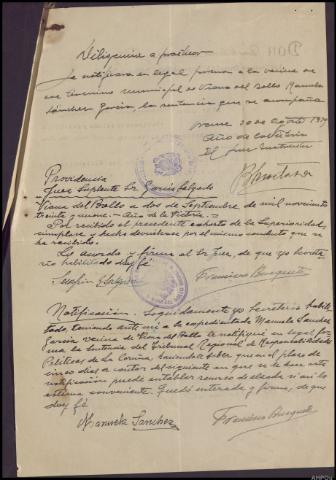 Diligencia a practicar
Se notificará en legal forma a la vecina de
ese término municipal de Viana del Bollo Manuela
Sánchez García, la sentencia que se acompaña
Orense 30 de Agosto 1939
Año de la Victoria
El Juez Instructor
Providencia
Juez Suplente Sr. García Salgado
Viana del Bollo a dos de Septiembre de mil novecientos
treinta y nueve.- Año de la Victoria.-
Por recibido el precedente exhorto de la Superioridad
cúmplase y hecho devuélvase por el mismo conducto que se
ha recibido.
Lo acordó y firma el Sr. Juez, de que yo Secreta-
rio habilitado doy fé
Francisco
Notificación. Seguidamente yo Secretario habili-
tado, teniendo ante mí a la expedientada Manuela Sánchez
García vecina de Viana del Bollo le notifiqué en legal for-
ma la Sentencia del Tribunal Regional de Responsabilidades
Políticas de La Coruña, haciéndole saber que en el plazo de
cinco días a contar del siguiente en que se le hace esta
notificación puede entablar recurso de alzada si así lo
estima conveniente. Quedó enterada y firma, de que
doy fé
Manuela Sanchez
Francisco